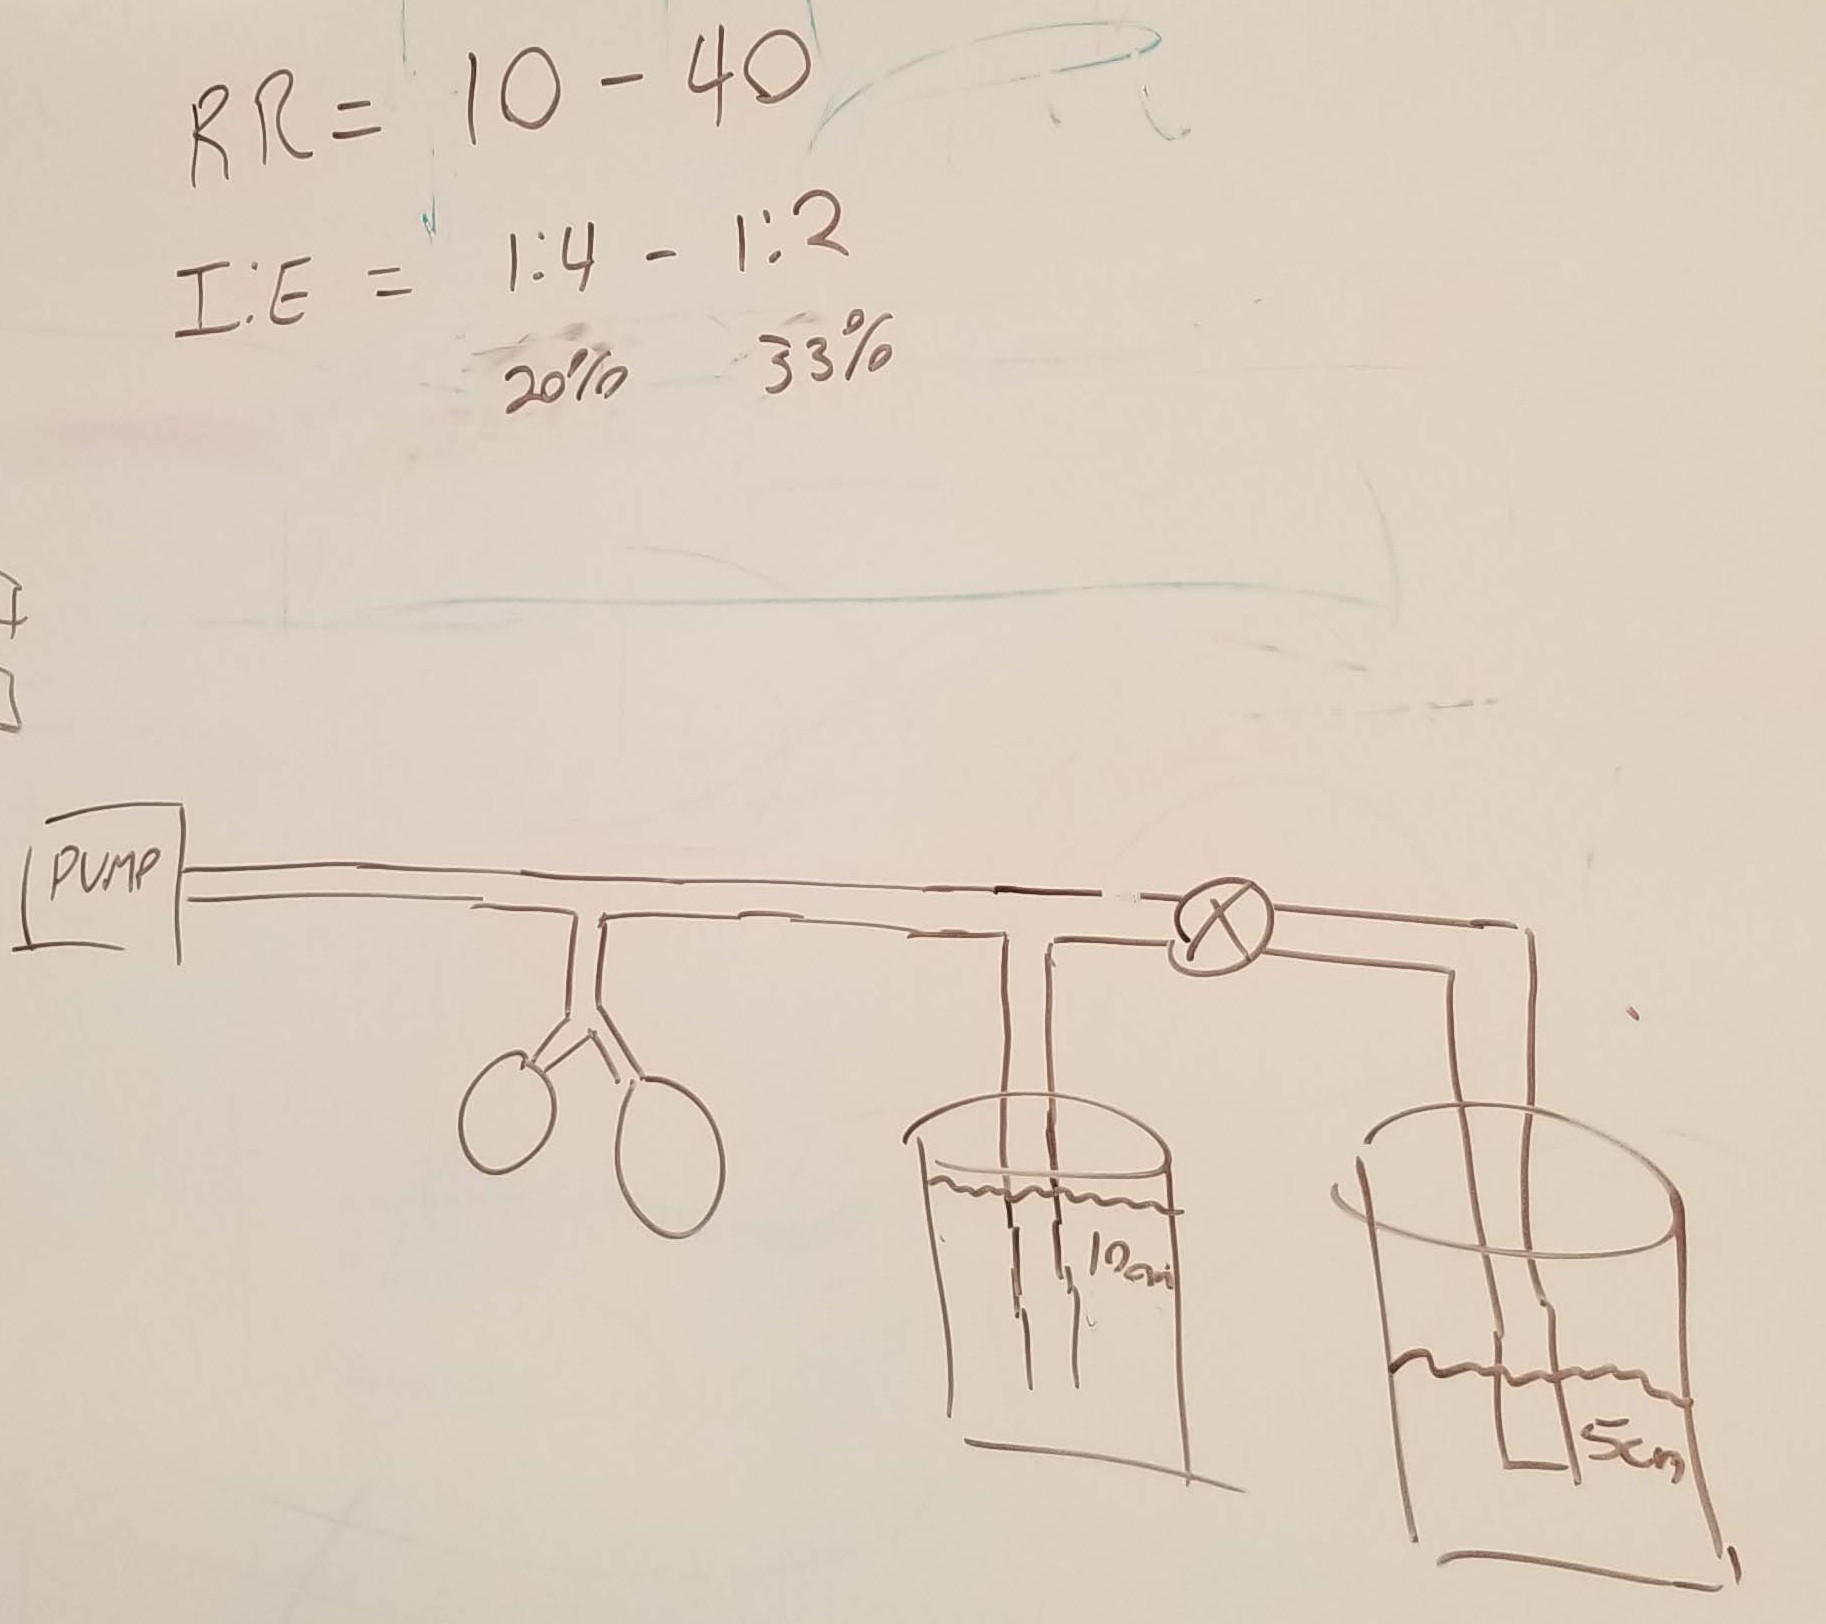 RR = 10 - 40
I:E = 1:4 - 1:2
20% 33%
PUMP
10cm
5cm